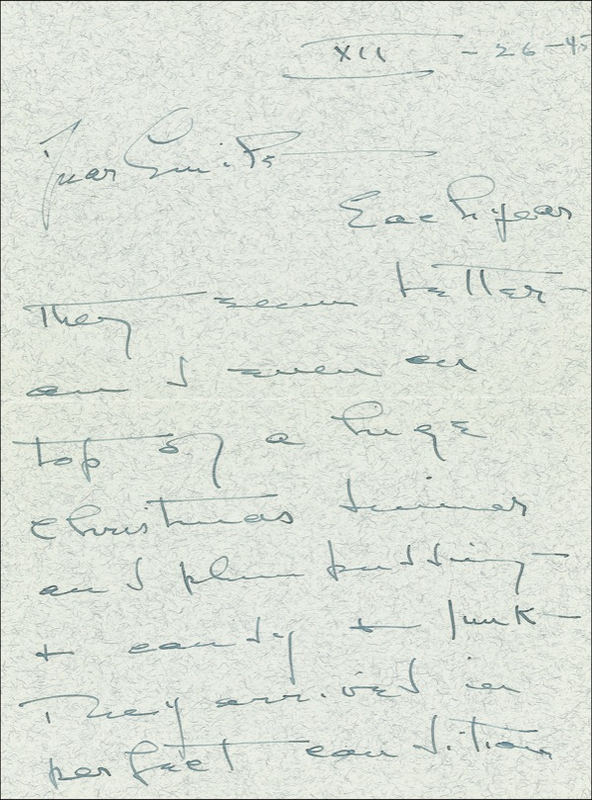 XII - 26-45
Dear Smith
Each year
They seem better -
and even on
top of a huge
Christmas dinner
and plum pudding -
+ candy + junk -
They arrived in
perfect condition